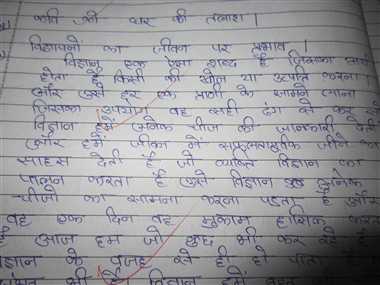 कवि की घर की तलाश।
विज्ञापनो का जीवन पर प्रभाव।
विज्ञान एक ऐसा शब्द है जिसका
होता है किसी की खोज या उत्पति करना।
और उसे हर एक प्राणी के सामने लाना
जिसका उपयोग वह सही ढंग से कर सके
विज्ञान हमें अनेक चीज की जानकारी देती
और हमें जीवन में सफलतापूर्वक जीने का
साहस देती है जो व्यक्ति विज्ञान का
पालन करता है उसे विज्ञान अनेक
चीजो का सामना करना पड़ता है और
वह एक दिन वह मुकाम हासिल करता
है आज हम जो कुछ भी कर रहे है
विज्ञान के वजह से ही हो पाता है
भी विज्ञान हमें